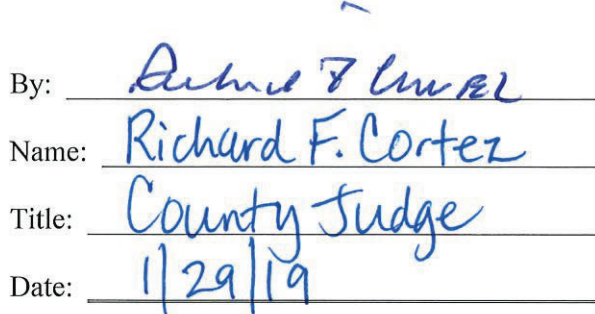 By: Richard F Cortez
Name: Richard F. Cortez
Title: County Judge
Date: 1/29/19